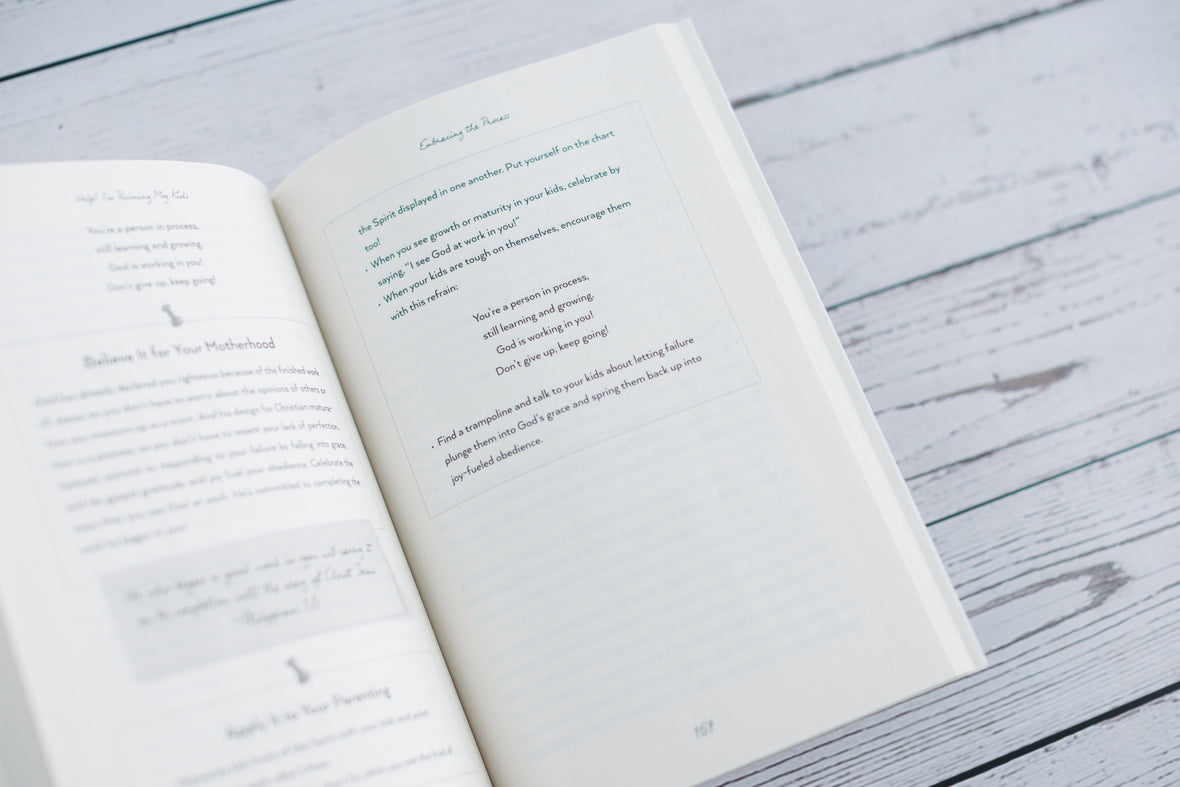 Help! I'm Ruining My Kids
You're a person in process,
still learning and growing.
God is working in you!
Don't give up, keep going!
Believe It for Your Motherhood
God has already declared you righteous because of the finished work
so you don't have to worry about the opinions of others or
as a mom. And his design for Christian
so you don't have to resent your lack of perfection.
Instead, commit to responding to your failure by falling into grace,
gratitude and you fuel your obedience. Celebrate the
ways that you see God at work. He's committed to completing the
He who began a good work in you will carry it
on to completion until the day of Christ Jesus
-Philippians 1:6
Apply It to Your Parenting
of the Spirit with your kids and
when you see the
Embracing the Process
the Spirit displayed in one another. Put yourself on the chart
too!
• When you see growth or maturity in your kids, celebrate by
saying, "I see God at work in you!"
• When your kids are tough on themselves, encourage them
with this refrain:
You're a person in process,
still learning and growing.
God is working in you!
Don't give up, keep going!
• Find a trampoline and talk to your kids about letting failure
plunge them into God's grace and spring them back up into
joy-fueled obedience.